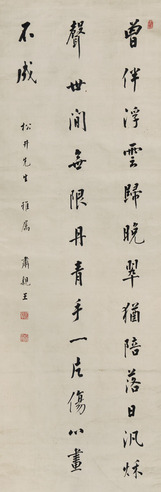 曾伴浮雲歸晚翠猶陪落日汎秋
聲世間無限丹青手一片傷心畫
不成
松井先生雅属 肅親王